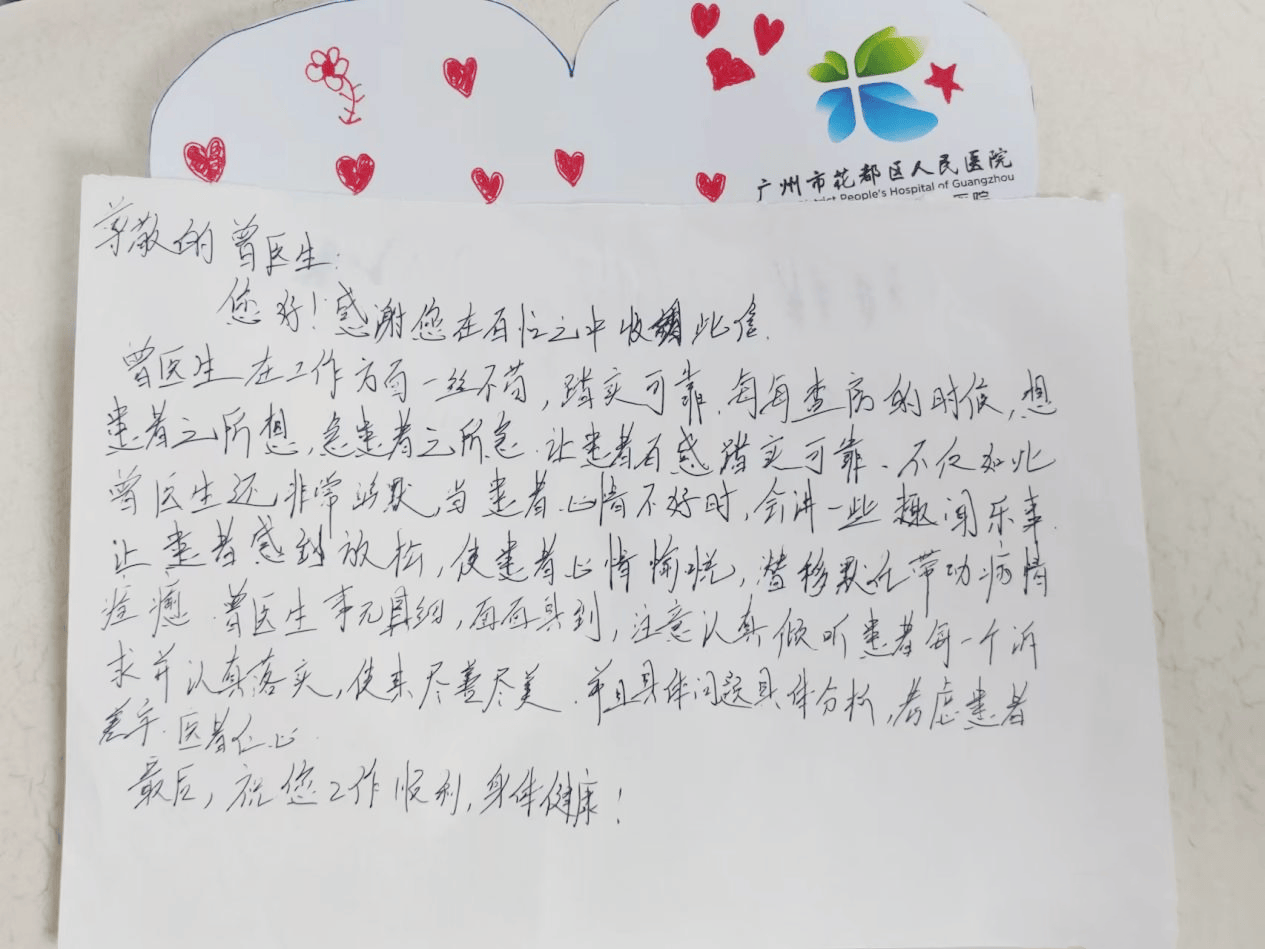 广州市花都区人民医院
trict People's Hospital of Guangzhou
医院
尊敬的曾医生:
您好!感谢您在百忙之中收阅此信.
曾医生在工作方面一丝不苟,踏实可靠.每每查病的时候,想
患者之所想,急患者之所急.让患者百感踏实可靠.不仅如此
曾医生还非常幽默,当患者心情不好时,会讲一些趣闻乐事.
让患者感到放松,使患者心情愉悦,潜移默化带功病情
痊癒.曾医生事无具细,面面具到,注意认真倾听患者每一个诉
求并认真落实,使来尽善尽美.并且具体问题具体分析,考虑患者
差字.医者仁心.
最后,祝您工作顺利,身体健康!